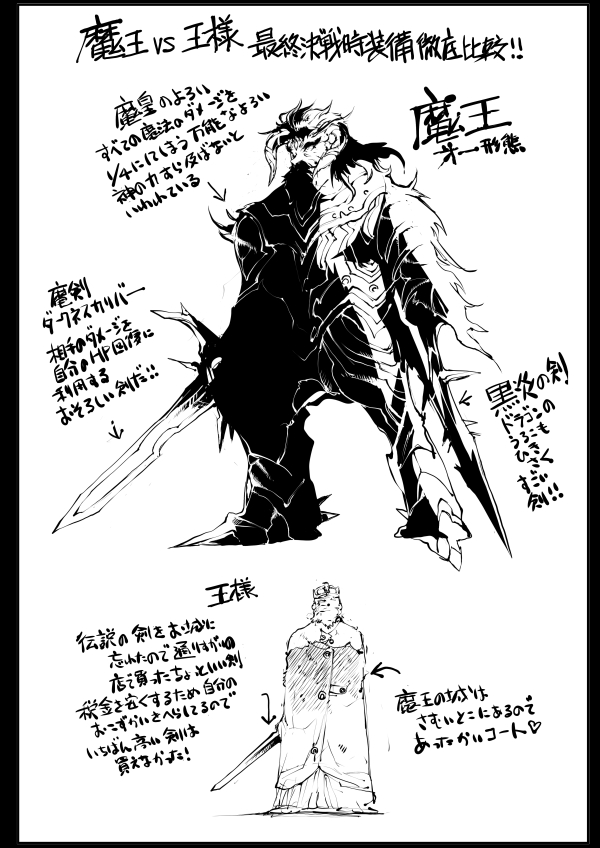 魔王vs王様 最終決戦時装備徹底比較!!
魔王
第一形態
魔皇のよろい
すべての魔法のダメージを
1/4にしてしまう万能なよろい
神の力すら及ばないと
いわれている
魔剣
ダークネイカリバー
相手のダメージを
自分のHP回復に
利用する
おそろしい剣だ!!
黒炎の剣
ドラゴンの
うろこも
ひきさく
すごい
剣!!
王様
伝説の剣をお城に
忘れたので通りすがりの
店で買ったちょっといい剣
税金を安くするため自分の
おこずかいをへらしてるので
いちばん高い剣は
買えなかった!
魔王のお城は
さむいとこにあるので
あったかいコート♡